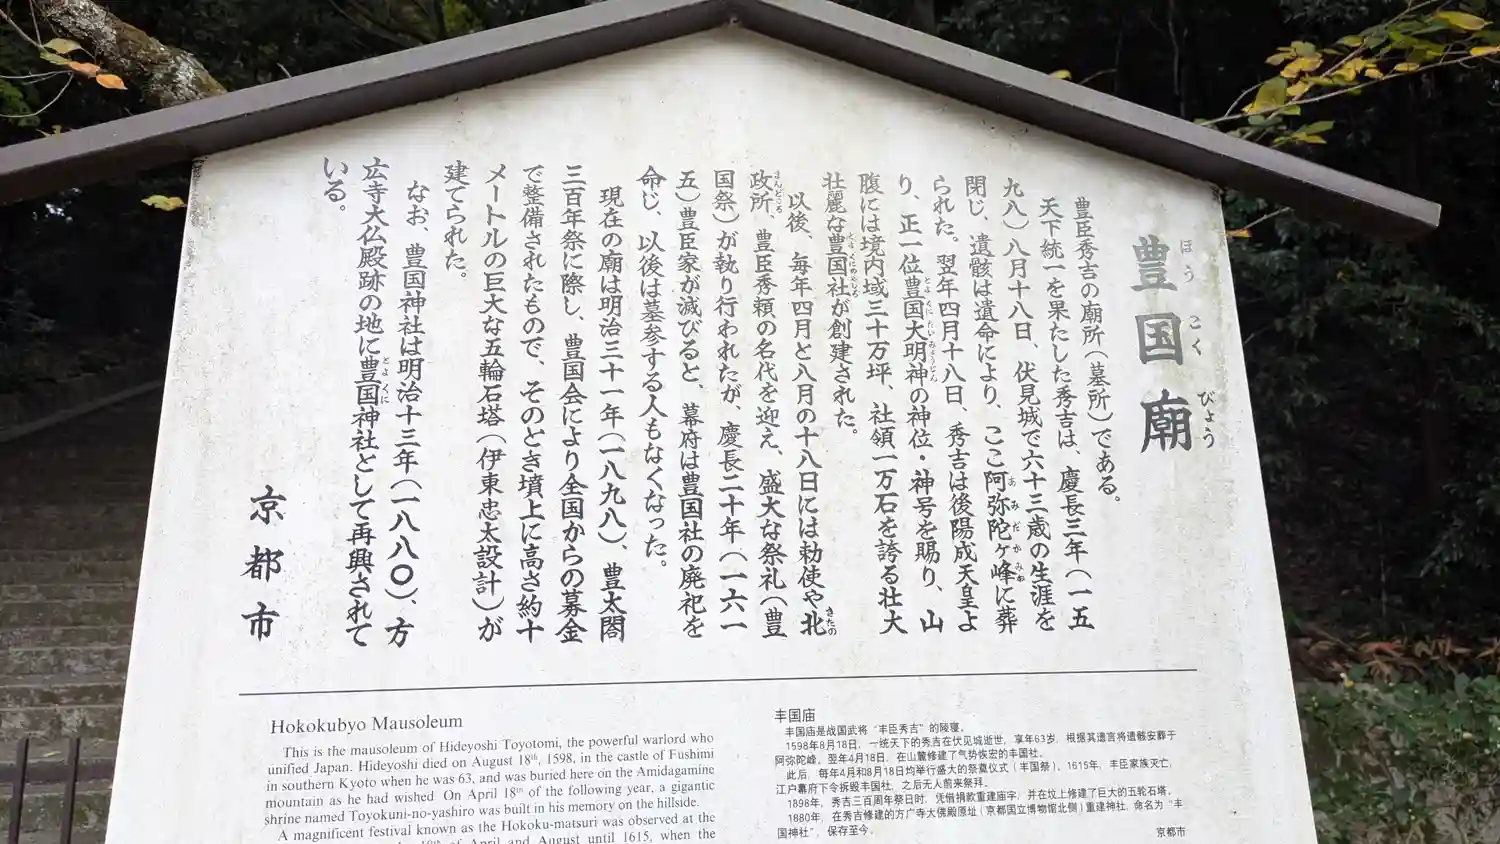 豊国廟
ほうこくびょう
豊臣秀吉の廟所（墓所）である。
天下統一を果たした秀吉は、慶長三年（一五
九八）八月十八日、伏見城で六十三歳の生涯を
閉じ、遺骸は遺命により、ここ阿弥陀ヶ峰に葬
られた。翌年四月十八日、秀吉は後陽成天皇よ
り、正一位豊国大明神の神位・神号を賜り、山
腹には境内域三十万坪、社領一万石を誇る壮大
壮麗な豊国社が創建された。
以後、毎年四月と八月の十八日には勅使や北
政所、豊臣秀頼の名代を迎え、盛大な祭礼（豊
国祭）が執り行われたが、慶長二十年（一六一
五）豊臣家が滅びると、幕府は豊国社の廃祀を
命じ、以後は墓参する人もなくなった。
現在の廟は明治三十一年（一八九八）、豊太閤
三百年祭に際し、豊国会により全国からの募金
で整備されたもので、そのとき墳上に高さ約十
メートルの巨大な五輪石塔（伊東忠太設計）が
建てられた。
なお、豊国神社は明治十三年（一八八〇）、方
広寺大仏殿跡の地に豊国神社として再興されて
いる。
京都市
Hokokubyo Mausoleum
This is the mausoleum of Hideyoshi Toyotomi, the powerful warlord who
unified Japan. Hideyoshi died on August 18th, 1598, in the castle of Fushimi
in southern Kyoto when he was 63, and was buried here on the Amidagamine
mountain as he had wished. On April 18th of the following year, a gigantic
shrine named Toyokuni-no-yashiro was built in his memory on the hillside.
A magnificent festival known as the Hokoku-matsuri was observed at the
18th of April and August until 1615, when the
丰国庙
丰国庙是战国武将“丰臣秀吉”的陵寝。
1598年8月18日，一统天下的秀吉在伏见城逝世，享年63岁，根据其遗言将遗骸安葬于
阿弥陀峰。翌年4月18日，在山麓修建了气势恢宏的丰国社。
此后，每年4月和8月18日均举行盛大的祭奠仪式（丰国祭）。1615年，丰臣家族灭亡，
江户幕府下令拆毁丰国社，之后无人前来祭拜。
1898年，秀吉三百周年祭日时，凭借捐款重建庙宇，并在坟上修建了巨大的五轮石塔。
1880年，在秀吉修建的方广寺大佛殿原址（京都国立博物馆北侧）重建神社，命名为“丰
国神社”，保存至今。
京都市